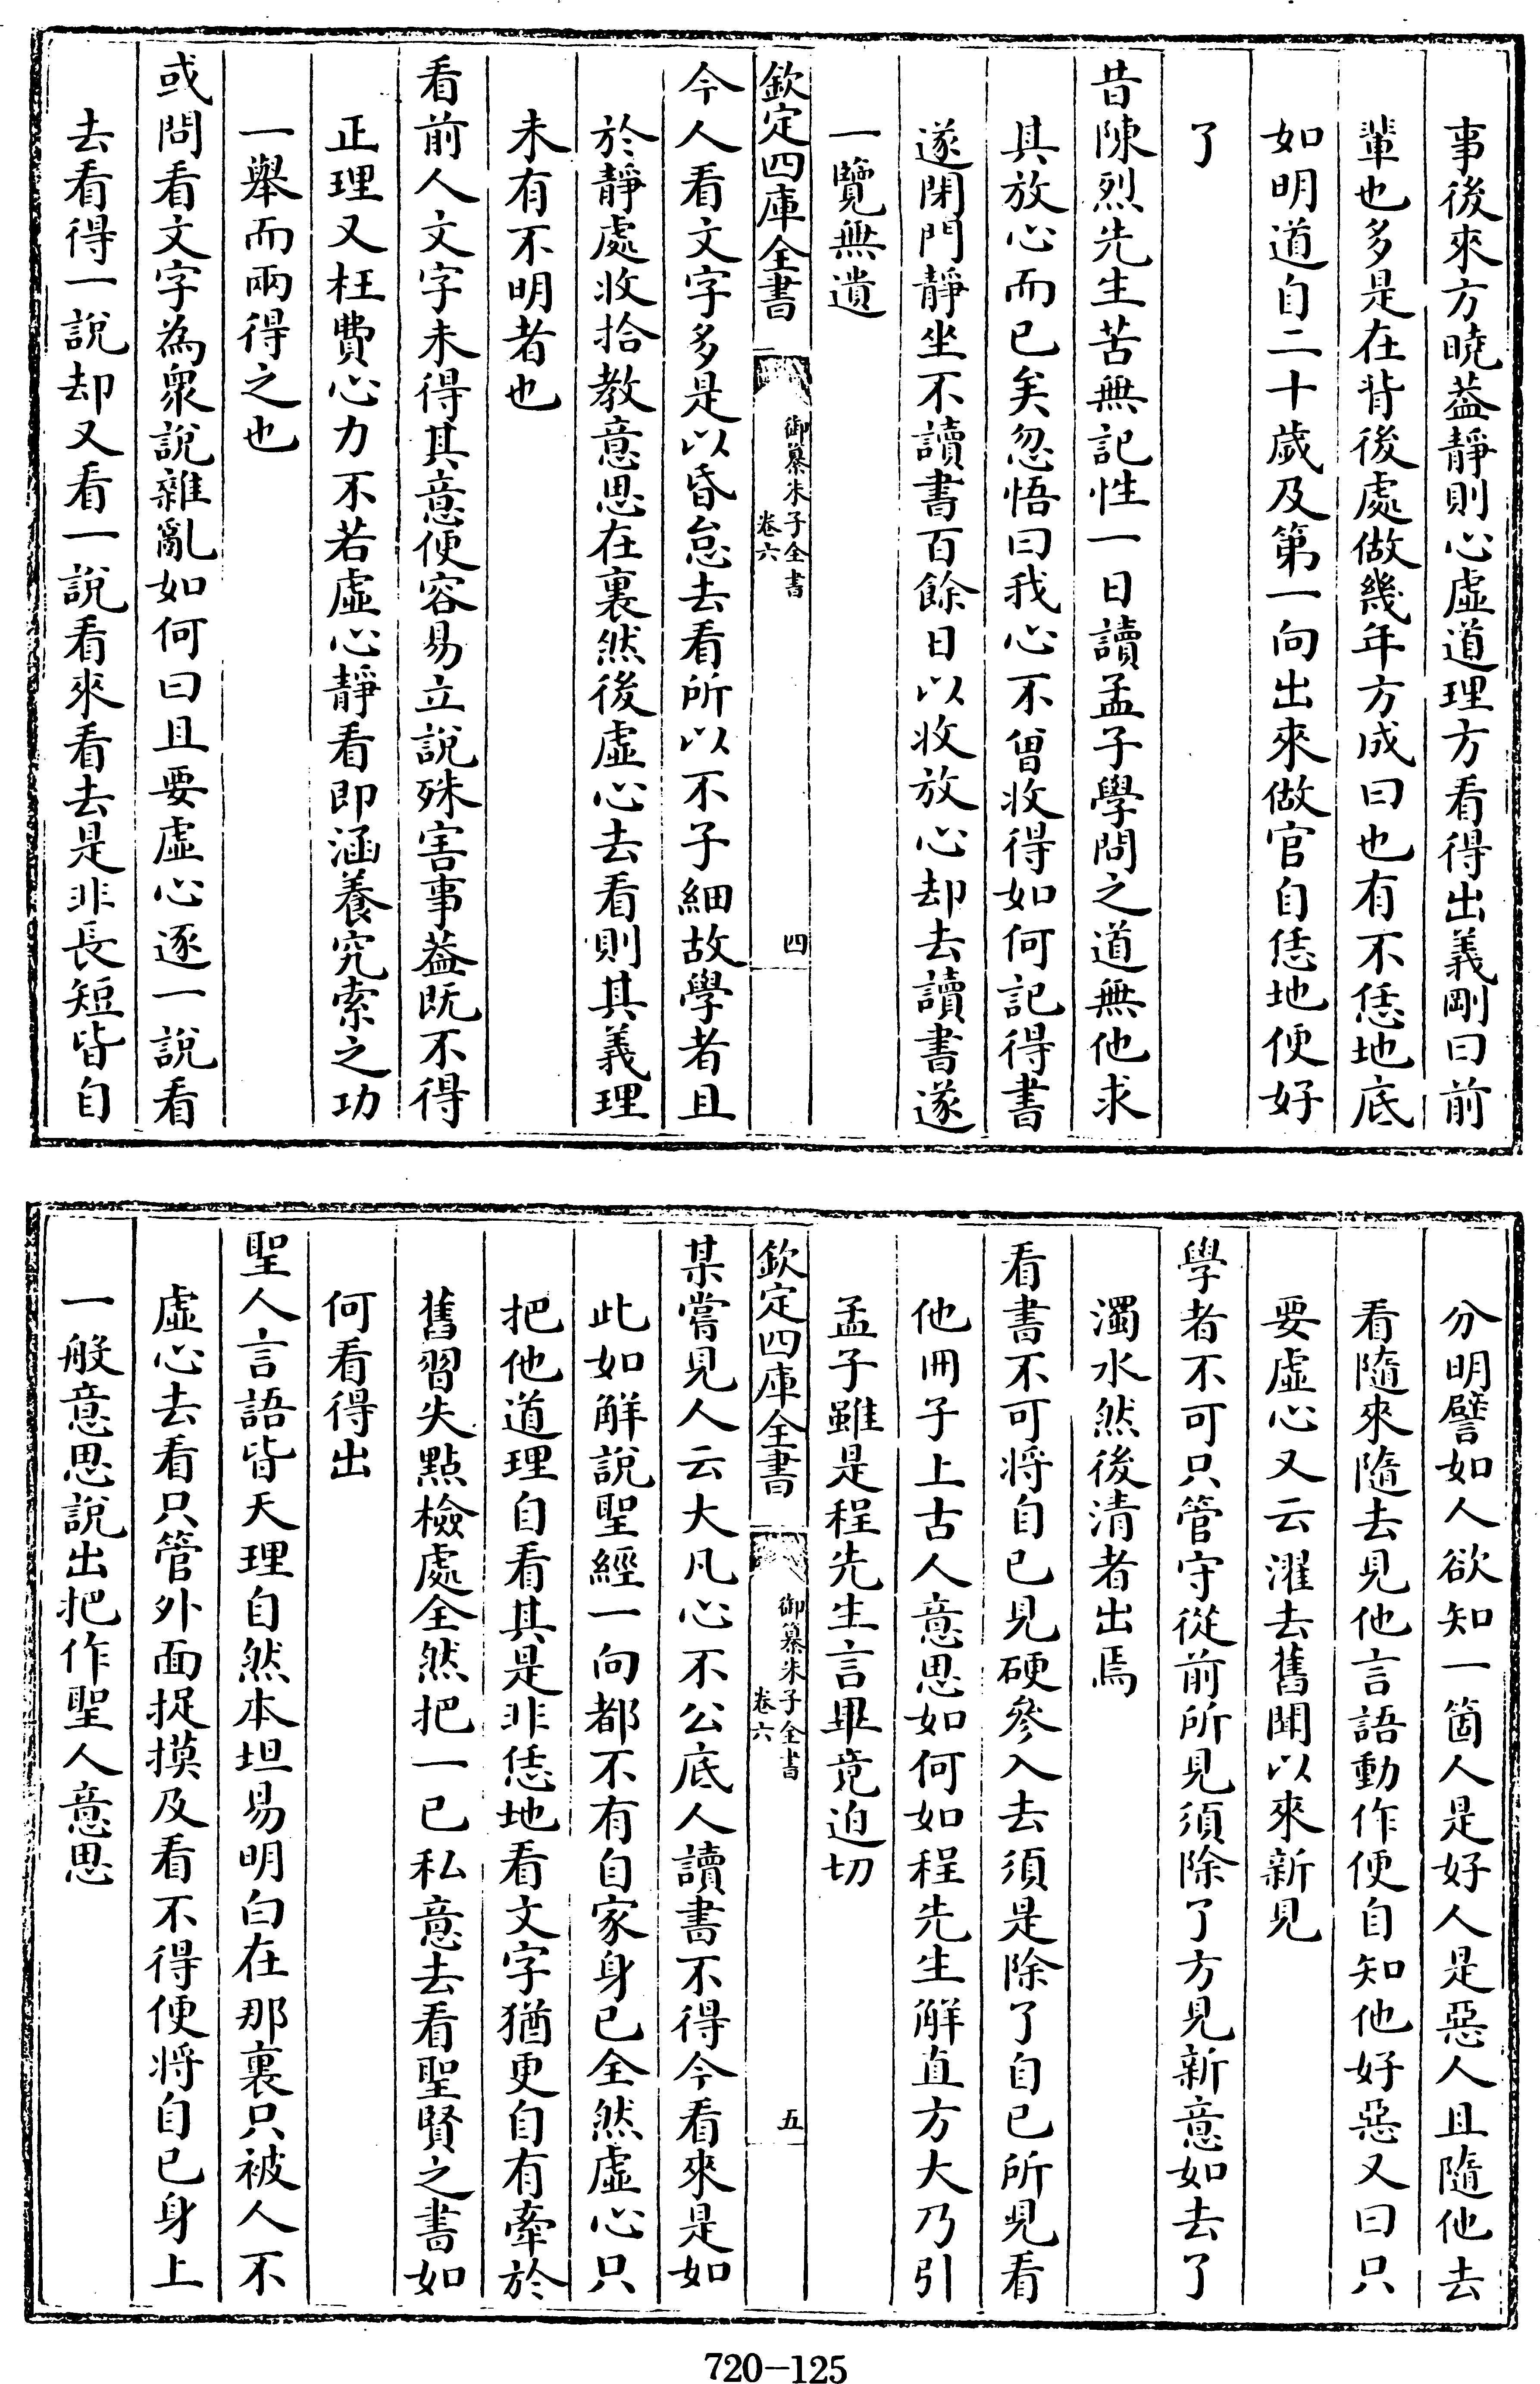 事後來方曉葢靜則心虛道理方看得出義剛曰前
輩也多是在背後處做幾年方成曰也有不恁地底
如明道自二十歲及第一向出來做官自恁地便好
了
昔陳烈先生苦無記性一日讀孟子學問之道無他求
其放心而已矣忽悟曰我心不曾收得如何記得書
遂閉門靜坐不讀書百餘日以收放心却去讀書遂
一覽無遺
欽定四庫全書
御纂朱子全書
卷六
四
今人看文字多是以昏怠去看所以不子細故學者且
於靜處收拾教意思在裏然後虛心去看則其義理
未有不明者也
看前人文字未得其意便容易立說殊害事葢既不得
正理又枉費心力不若虛心靜看即涵養究索之功
一舉而兩得之也
或問看文字為衆說雜亂如何曰且要虛心逐一說看
去看得一說却又看一說看來看去是非長短皆自
分明譬如人欲知一箇人是好人是惡人且隨他去
看隨來隨去見他言語動作便自知他好惡又曰只
要虛心又云濯去舊聞以來新見
學者不可只管守從前所見須除了方見新意如去了
濁水然後清者出焉
看書不可將自己見硬參入去須是除了自己所見看
他冊子上古人意思如何如程先生解直方大乃引
孟子雖是程先生言畢竟迫切
欽定四庫全書
御纂朱子全書
卷六
五
某嘗見人云大凡心不公底人讀書不得今看來是如
此如解說聖經一向都不有自家身己全然虛心只
把他道理自看其是非恁地看文字猶更自有牽於
舊習失點檢處全然把一己私意去看聖賢之書如
何看得出
聖人言語皆天理自然本坦易明白在那裏只被人不
虛心去看只管外面捉摸及看不得便將自己身上
一般意思說出把作聖人意思
720-125